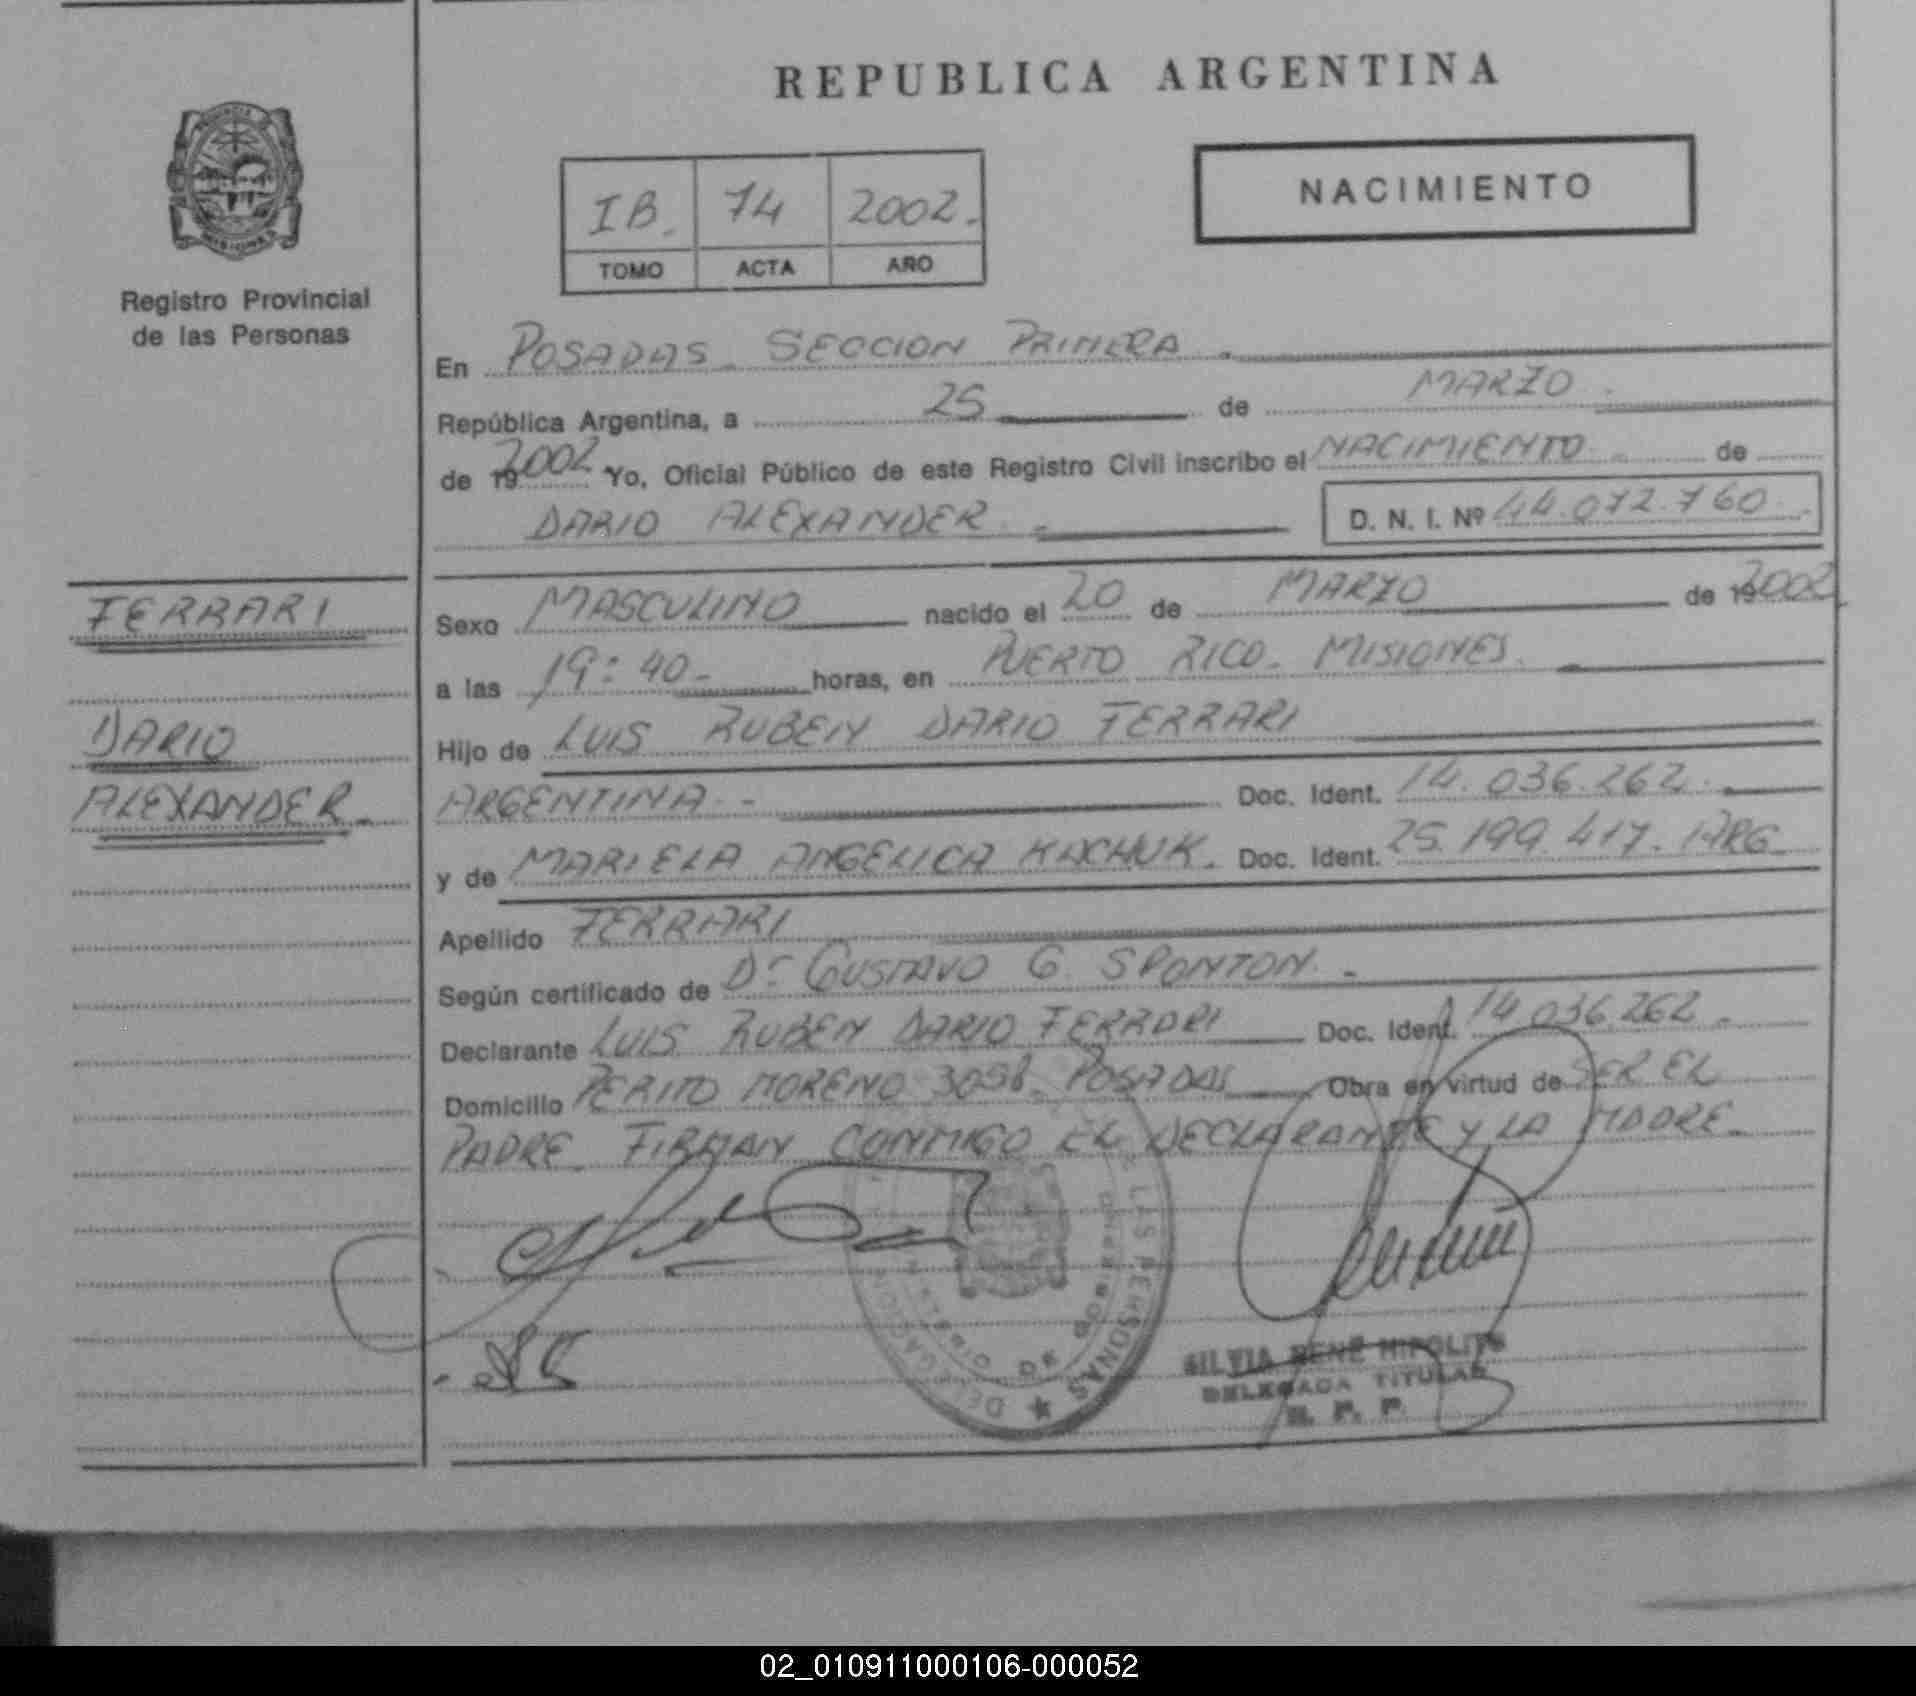 REPUBLICA ARGENTINA
PROVINCIA
MISIONES
Registro Provincial
de las Personas
IB. 74 2002.
TOMO ACTA AÑO
NACIMIENTO
En POSADAS. SECCION PRIMERA.
República Argentina, a 25 de MARZO.
de 19 2002. Yo, Oficial Público de este Registro Civil inscribo el NACIMIENTO de
DARIO ALEXANDER. D. N. I. Nº 44.072.760.
FERRARI
DARIO
ALEXANDER.
Sexo MASCULINO nacido el 20 de MARZO de 19 2002.
a las 19:40 horas, en PUERTO RICO. MISIONES.
Hijo de LUIS RUBEN DARIO FERRARI
ARGENTINA. Doc. Ident. 14.036.262.
y de MARIELA ANGELICA KACHUK. Doc. Ident. 25.199.417. ARG.
Apellido FERRARI
Según certificado de Dr GUSTAVO G. SPONTON.
Declarante LUIS RUBEN DARIO FERRARI Doc. Ident. 14.036.262.
Domicilio PERITO MORENO 3098. POSADAS Obra en virtud de SER EL
PADRE. FIRMAN CONMIGO EL DECLARANTE Y LA MADRE.
LAS PERSONAS ★ DELEGACION
MINISTERIO DE GOBIERNO
SILVIA RENE HIPOLITO
DELEGADA TITULAR
R. P. P.
02_010911000106-000052